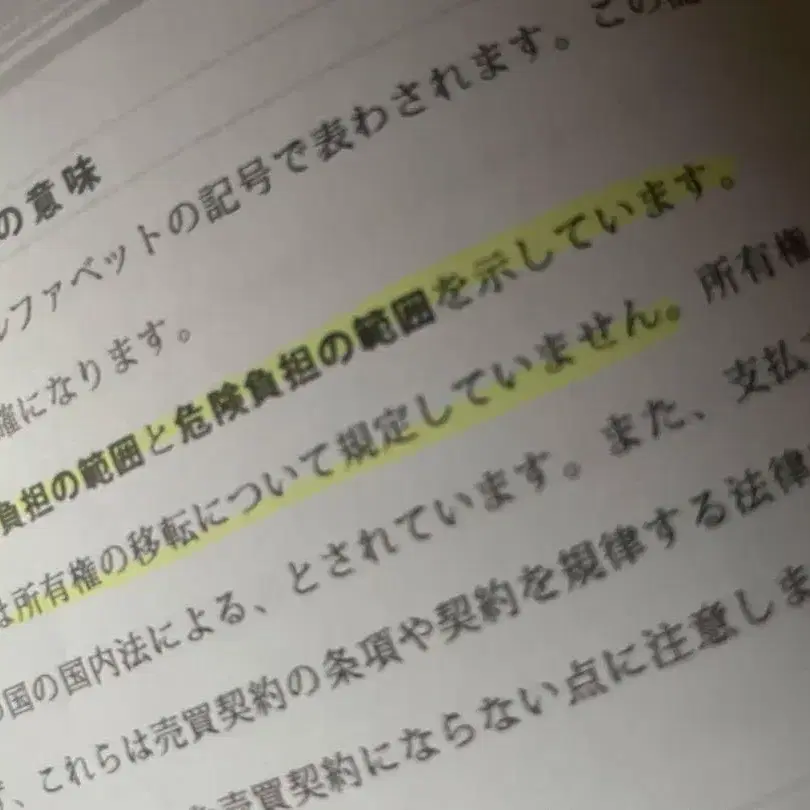 の意味
ルファベットの記号で表わされます。この
確になります。
負担の範囲と危険負担の範囲を示しています。
は所有権の移転について規定していません。所有権
国の国内法による、とされています。また、支払
、これらは売買契約の条項や契約を規律する法律
売買契約にならない点に注意しま